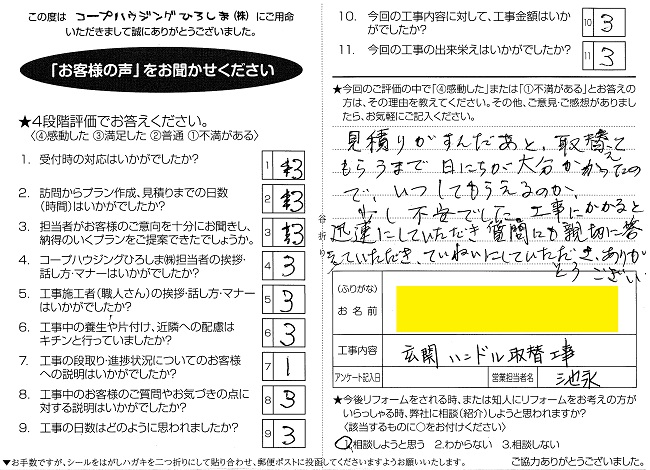 この度は コープハウジングひろしま(株) にご用命
いただきまして誠にありがとうございました。
「お客様の声」をお聞かせください
★4段階評価でお答えください。
〈④感動した ③満足した ②普通 ①不満がある〉
1. 受付時の対応はいかがでしたか? 1 3
2. 訪問からプラン作成、見積りまでの日数
(時間)はいかがでしたか? 2 3
3. 担当者がお客様のご意向を十分にお聞きし、
納得のいくプランをご提案できたでしょうか。 3 3
4. コープハウジングひろしま㈱担当者の挨拶・
話し方・マナーはいかがでしたか? 4 3
5. 工事施工者(職人さん)の挨拶・話し方・マナー
はいかがでしたか? 5 3
6. 工事中の養生や片付け、近隣への配慮は
キチンと行っていましたか? 6 3
7. 工事の段取り・進捗状況についてのお客様
への説明はいかがでしたか? 7 1
8. 工事中のお客様のご質問やお気づきの点に
対する説明はいかがでしたか? 8 3
9. 工事の日数はどのように思われましたか? 9 3
▼お手数ですが、シールをはがしハガキを二つ折りにして貼り合わせ、郵便ポストに投函してくださいますようお願いいたします。
谷折り
10. 今回の工事内容に対して、工事金額はいか
がでしたか? 10 3
11. 今回の工事の出来栄えはいかがでしたか? 11 3
★今回のご評価の中で「④感動した」または「①不満がある」とお答えの
方は、その理由を教えてください。その他、ご意見・ご感想がありました
ら、お気軽にご記入ください。
見積りがすんだあと、取替えて
もらうまで日にちが大分かかったの
で、いつしてもらえるのか、
少し不安でした。工事にかかると
迅速にしていただき質問にも親切に答
えていただき、ていねいにしていただき、ありが
とうござい
(ふりがな)
お名前
工事内容 玄関ハンドル取替工事
アンケート記入日 営業担当者名 池永
★今後リフォームをされる時、または知人にリフォームをお考えの方が
いらっしゃる時、弊社に相談(紹介)しようと思われますか?
〈該当するものに○をお付けください〉
1.相談しようと思う 2.わからない 3.相談しない
ご協力ありがとうございました。